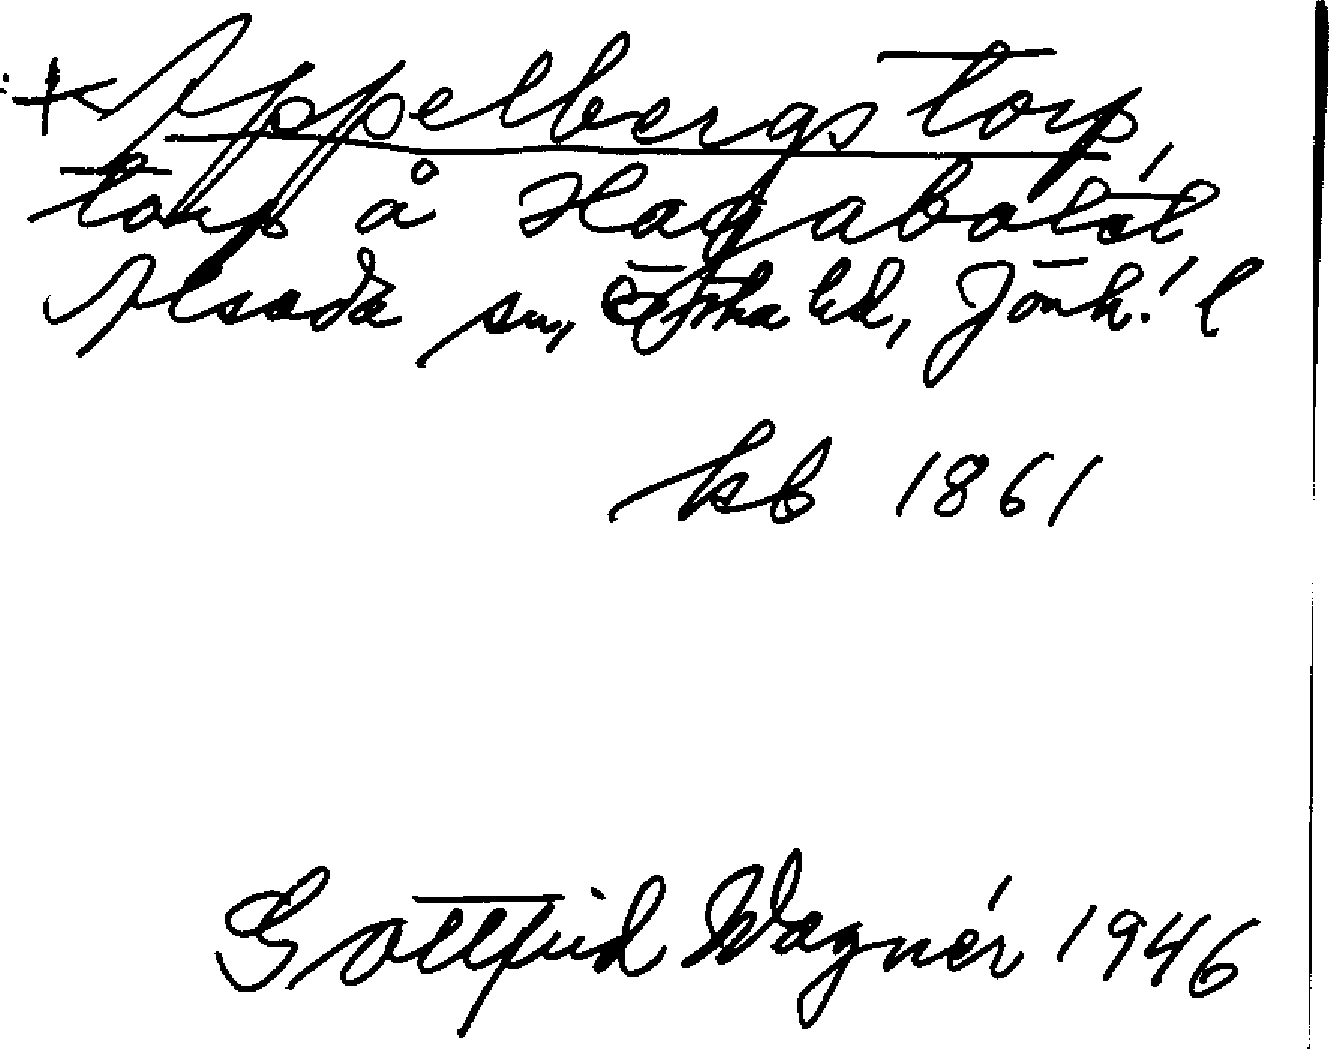 + Appelbergstorp
torp å Hagabo
Alseda sn, Östra hd, Jönk. l
kb 1861
Gottfrid Wagnér 1946